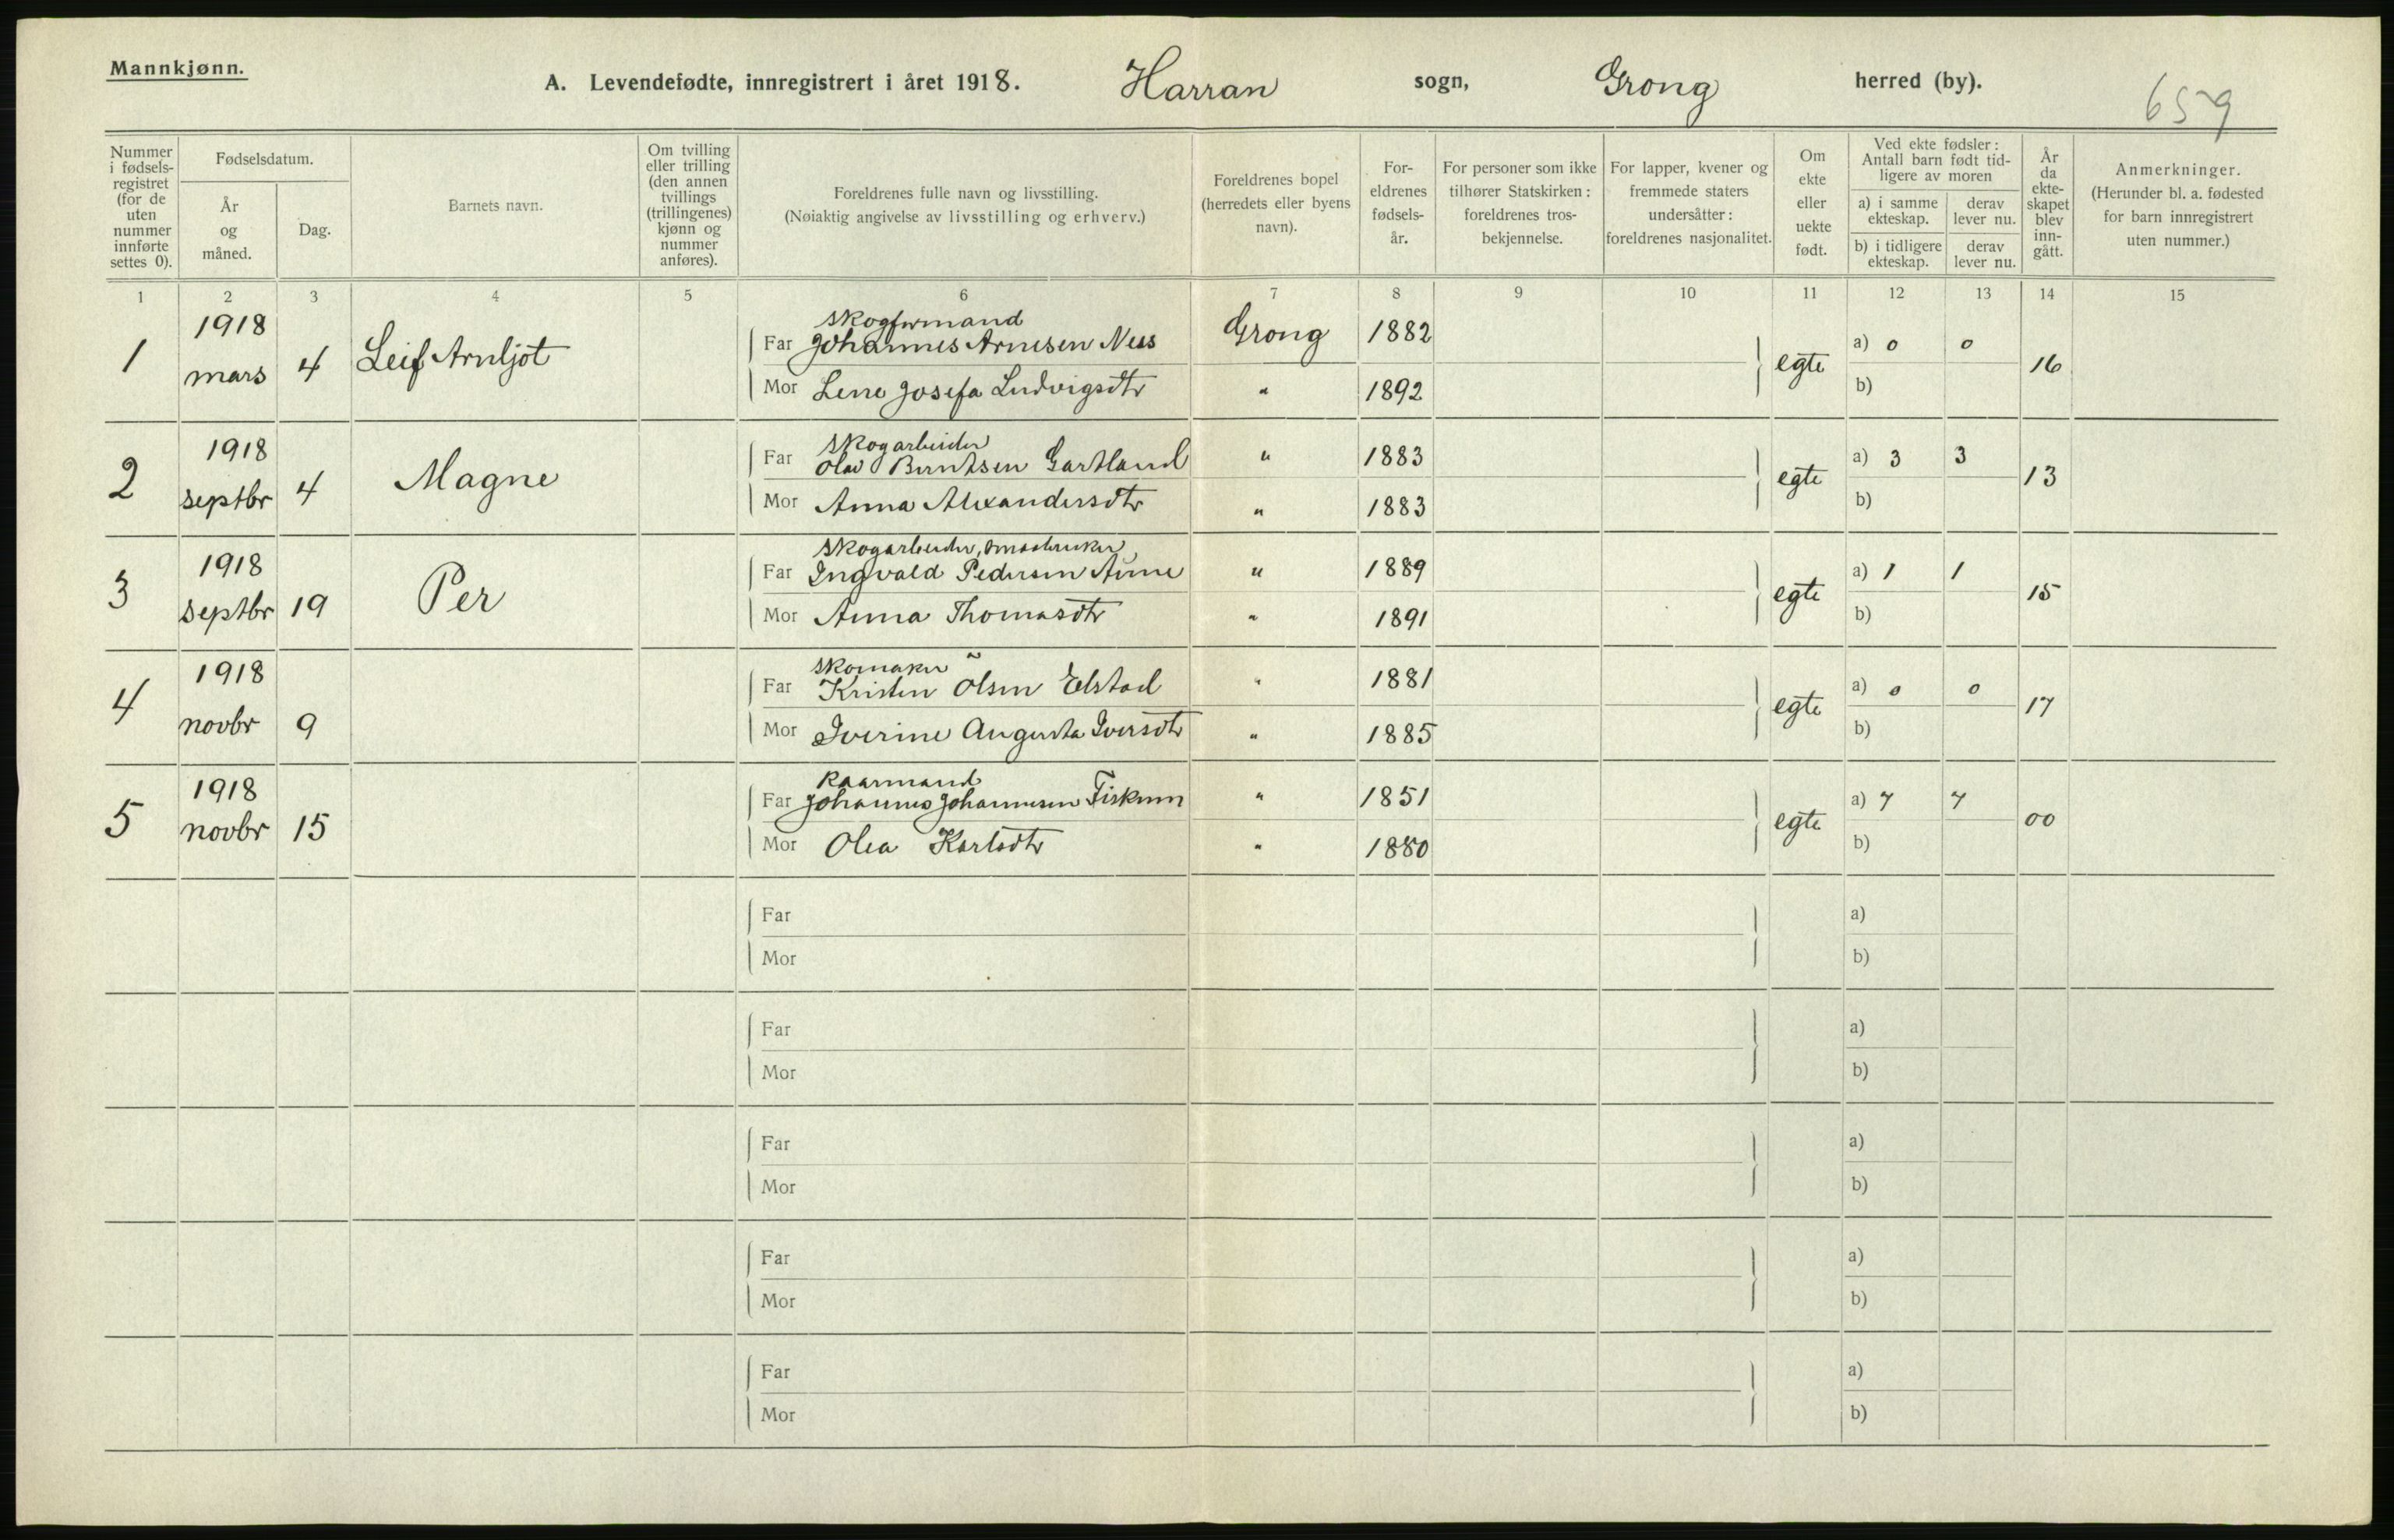 Mannkjønn.
A. Levendefødte, innregistrert i året 1918. Harran sogn, Grong herred (by).
659
Nummer i fødsels-registret (for de uten nummer innførte settes 0).
Fødselsdatum.
År og måned.
Dag.
Barnets navn.
Om tvilling eller trilling (den annen tvillings (trillingenes) kjønn og nummer anføres).
Foreldrenes fulle navn og livsstilling.
(Nøiaktig angivelse av livsstilling og erhverv.)
Foreldrenes bopel (herredets eller byens navn).
For-eldrenes fødsels-år.
For personer som ikke tilhører Statskirken: foreldrenes tros-bekjennelse.
For lapper, kvener og fremmede staters undersåtter: foreldrenes nasjonalitet.
Om ekte eller uekte født.
Ved ekte fødsler: Antall barn født tid-ligere av moren
a) i samme ekteskap.
derav lever nu.
b) i tidligere ekteskap.
derav lever nu.
År da ekte-skapet blev inn-gått.
Anmerkninger.
(Herunder bl. a. fødested for barn innregistrert uten nummer.)
1 2 3 4 5 6 7 8 9 10 11 12 13 14 15
1918 skogformand
1 mars 4 Leif Arnljot Far Johannes Arnesen Ness Grong 1882 egte a) 0 0 16
Mor Lene Josefa Ludvigsdtr " 1892 b)
1918 Skogarbeider
2 septbr 4 Magne Far Olav Berntsen Gartland " 1883 egte a) 3 3 13
Mor Anna Alexandersdtr " 1883 b)
1918 Skogarbeider, smaabruker
3 septbr 19 Per Far Ingvald Pedersen Aune " 1889 egte a) 1 1 15
Mor Anna Thomasdtr " 1891 b)
1918 Skomaker
4 novbr 9 Far Kristen Olsen Elstad " 1881 egte a) 0 0 17
Mor Iverine Augusta Iversdtr " 1885 b)
1918 Kaarmand
5 novbr 15 Far Johannes Johannesen Fiskum " 1851 egte a) 7 7 00
Mor Olea Karlsdtr " 1880 b)
Far a)
Mor b)
Far a)
Mor b)
Far a)
Mor b)
Far a)
Mor b)
Far a)
Mor b)